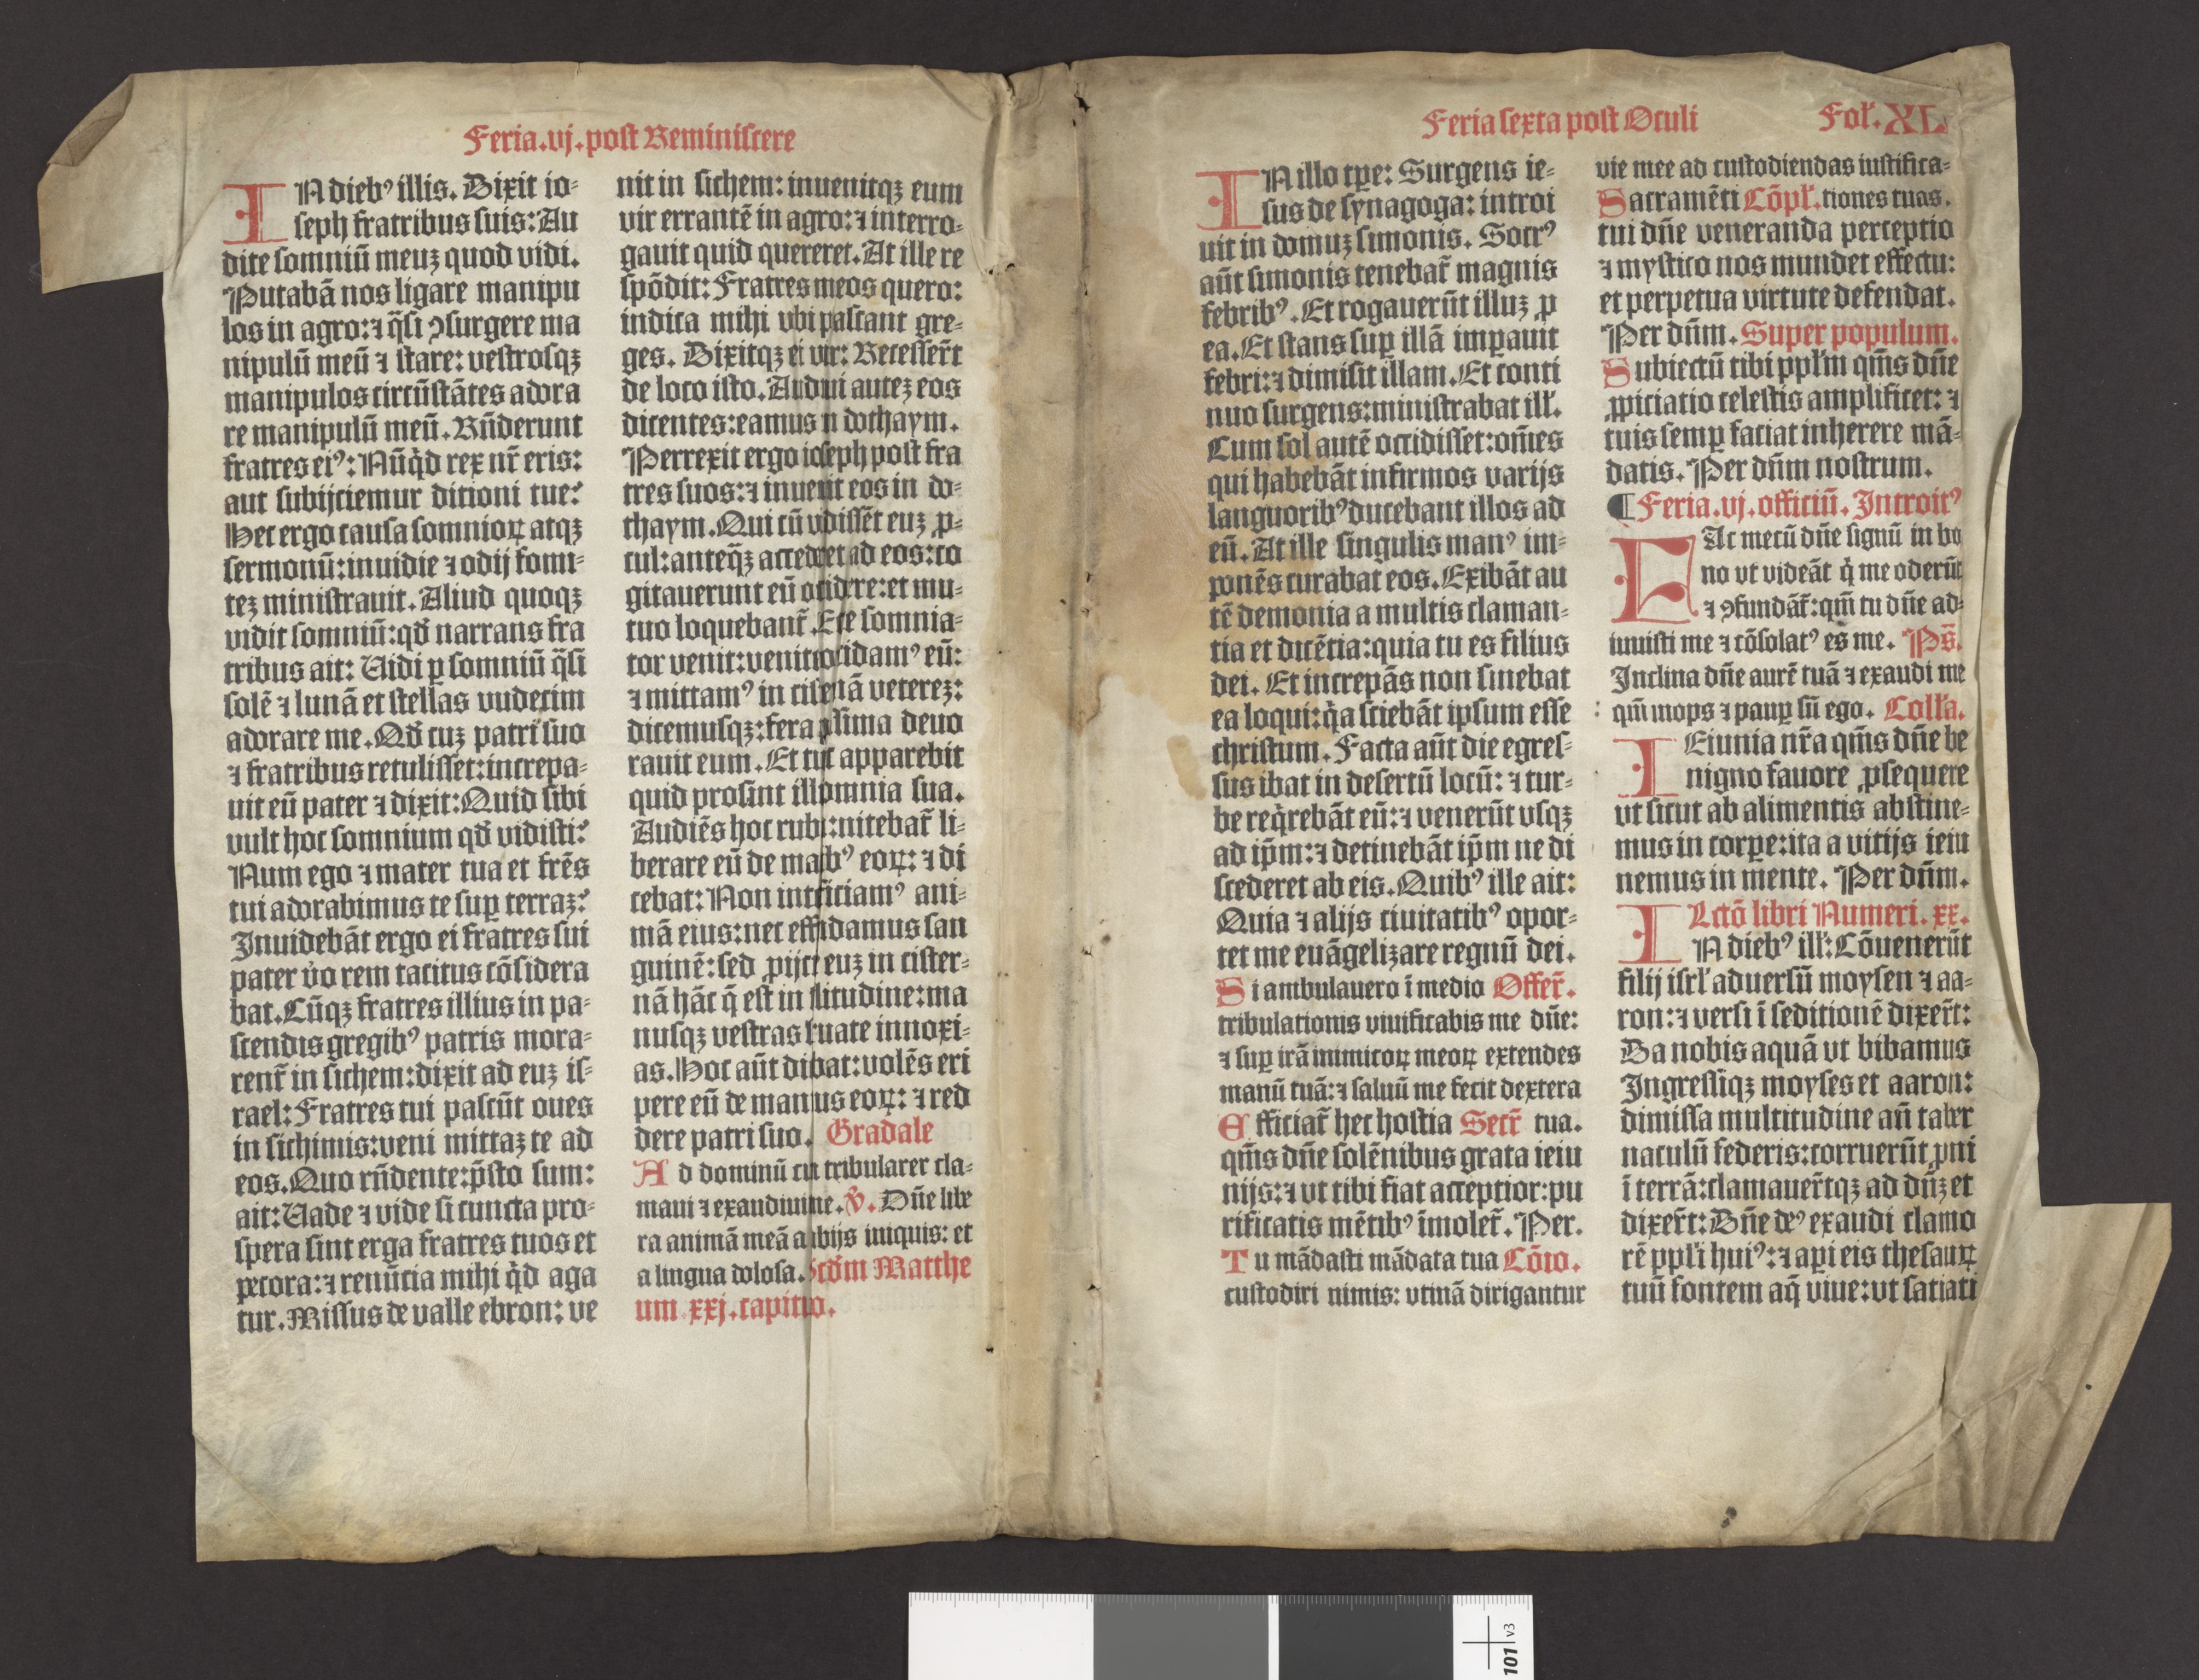 Feria.vj.post Reminiscere
IN diebꝰ illis. Dixit io-
seph fratribus suis: Au
dite somniū meuꝫ quod vidi.
Putabā nos ligare manipu
los in agro: ⁊ q̄si ꝯsurgere ma
nipulū meū ⁊ stare: vestrosqꝫ
manipulos circūstātes adora
re manipulū meū. Rn̄derunt
fratres eiꝰ: Nūqͥd rex nr̄ eris:
aut subijciemur ditioni tue?
Hec ergo causa somnioꝝ atqꝫ
sermonū: inuidie ⁊ odij fomi-
teꝫ ministrauit. Aliud quoqꝫ
vidit somniū: qd̄ narrans fra
tribus ait: Uidi ꝑ somniū q̄si
solē ⁊ lunā et stellas vndecim
adorare me. Qd̄ cuꝫ patri suo
⁊ fratribus retulisset: increpa-
uit eū pater ⁊ dixit: Quid sibi
vult hoc somnium qd̄ vidisti?
Num ego ⁊ mater tua et fr̄es
tui adorabimus te suꝑ terraꝫ?
Inuidebāt ergo ei fratres sui
pater v̓o rem tacitus cōsidera
bat. Cūqꝫ fratres illius in pa-
scendis gregibꝰ patris mora-
rent̄ in sichem: dixit ad euꝫ is-
rael: Fratres tui pascūt oues
in sichimis: veni mittaꝫ te ad
eos. Quo rn̄dente: p̄sto sum:
ait: Uade ⁊ vide si cuncta pro-
spera sint erga fratres tuos et
pecora: ⁊ renūcia mihi qͥd aga
tur. Missus de valle ebron: ve
nit in sichem: inuenitqꝫ eum
vir errantē in agro: ⁊ interro-
gauit quid quereret. At ille re
spōdit: Fratres meos quero:
indica mihi vbi pascant gre-
ges. Dixitqꝫ ei vir: Recesser̄t
de loco isto. Audiui auteꝫ eos
dicentes: eamus in dothaym.
Perrexit ergo ioseph post fra
tres suos: ⁊ inuenit eos in do-
thaym. Qui cū vidissēt euꝫ ꝓ-
cul: anteq̄ꝫ accederet ad eos: co
gitauerunt eū occidere: et mu-
tuo loquebant̄. Ecce somnia-
tor venit: venite occidamꝰ eū:
⁊ mittamꝰ in cisternā vetereꝫ:
dicemusqꝫ: fera pessima deuo
rauit eum. Et tunc apparebit
quid prosint illi somnia sua.
Audiēs hoc ruben: nitebat̄ li-
berare eū de manibꝰ eoꝝ: ⁊ di
cebat: Non interficiamꝰ ani-
mā eius: nec effundamus san
guinē: sed ꝓijcite euꝫ in cister-
nā hāc q̄ est in solitudine: ma
nusqꝫ vestras seruate innoxi-
as. Hoc aūt dicebat: volēs eri
pere eū de manibus eoꝝ: ⁊ red
dere patri suo. Gradale
Ad dominū cum tribularer cla-
maui ⁊ exaudiuit me. ℣. Dn̄e libe
ra animā meā a labijs iniquis: et
a lingua dolosa. Scdm̄ Matthe
um xxj. capitulo.
Feria sexta post Oculi Fol̄. XL
IN illo tꝑe: Surgens ie-
sus de synagoga: introi
uit in domuꝫ simonis. Socrꝰ
aūt simonis tenebat̄ magnis
febribꝰ. Et rogauerūt illuꝫ ꝓ
ea. Et stans suꝑ illā imꝑauit
febri: ⁊ dimisit illam. Et conti
nuo surgens: ministrabat ill̄.
Cum sol autē occidisset: om̄es
qui habebāt infirmos varijs
languoribꝰ ducebant illos ad
eū. At ille singulis manꝰ im-
ponēs curabat eos. Exibāt au
tē demonia a multis claman-
tia et dicētia: quia tu es filius
dei. Et increpās non sinebat
ea loqui: qͥa sciebāt ipsum esse
christum. Facta aūt die egres-
sus ibat in desertū locū: ⁊ tur-
be reqͥrebāt eū: ⁊ venerūt vsqꝫ
ad ip̄m: ⁊ detinebāt ip̄m ne di
scederet ab eis. Quibꝰ ille ait:
Quia ⁊ alijs ciuitatibꝰ opor-
tet me euāgelizare regnū dei.
Si ambulauero ī medio Offer̄.
tribulationis viuificabis me dn̄e:
⁊ suꝑ irā inimicoꝝ meoꝝ extendes
manū tuā: ⁊ saluū me fecit dextera
Efficiat̄ hec hostia Secr̄ tua.
qm̄s dn̄e solēnibus grata ieiu
nijs: ⁊ vt tibi fiat acceptior: pu
rificatis mētibꝰ īmolet̄. Per.
Tu mādasti mādata tua Cōio.
custodiri nimis: vtinā dirigantur
vie mee ad custodiendas iustifica-
Sacramēti Cōpl̄. tiones tuas.
tui dn̄e veneranda perceptio
⁊ mystico nos mundet effectu:
et perpetua virtute defendat.
Per dn̄m. Super populum.
Subiectū tibi ppl̄m qm̄s dn̄e
ꝓpiciatio celestis amplificet: ⁊
tuis semꝑ faciat inherere mā-
datis. Per dn̄m nostrum.
¶ Feria.vj.officiū. Introitꝰ
FAc mecū dn̄e signū in bo
no vt videāt qͥ me oderūt
⁊ ꝯfundāt̄: qm̄ tu dn̄e ad-
iuuisti me ⁊ cōsolatꝰ es me. Ps̄.
Inclina dn̄e aurē tuā ⁊ exaudi me
qm̄ inops ⁊ pauꝑ sū ego. Coll̄a.
IEiunia nr̄a qm̄s dn̄e be
nigno fauore ꝓsequere
vt sicut ab alimentis abstine-
mus in corꝑe: ita a vitijs ieiu
nemus in mente. Per dn̄m.
Lctō libri Numeri. xx.
IN diebꝰ ill̄: Cōuenerūt
filij isrl̄ aduersū moysen ⁊ aa-
ron: ⁊ versi ī seditionē dixer̄t:
Da nobis aquā vt bibamus
Ingressiqꝫ moyses et aaron:
dimissa multitudine an̄ taber
naculū federis: corruerūt ꝓni
ī terrā: clamauer̄tqꝫ ad dn̄ꝫ et
dixer̄t: Dn̄e deꝰ exaudi clamo
rē ppl̄i huiꝰ: ⁊ aꝑi eis thesauꝝ
tuū fontem aq̄ viue: vt satiati
101 v3